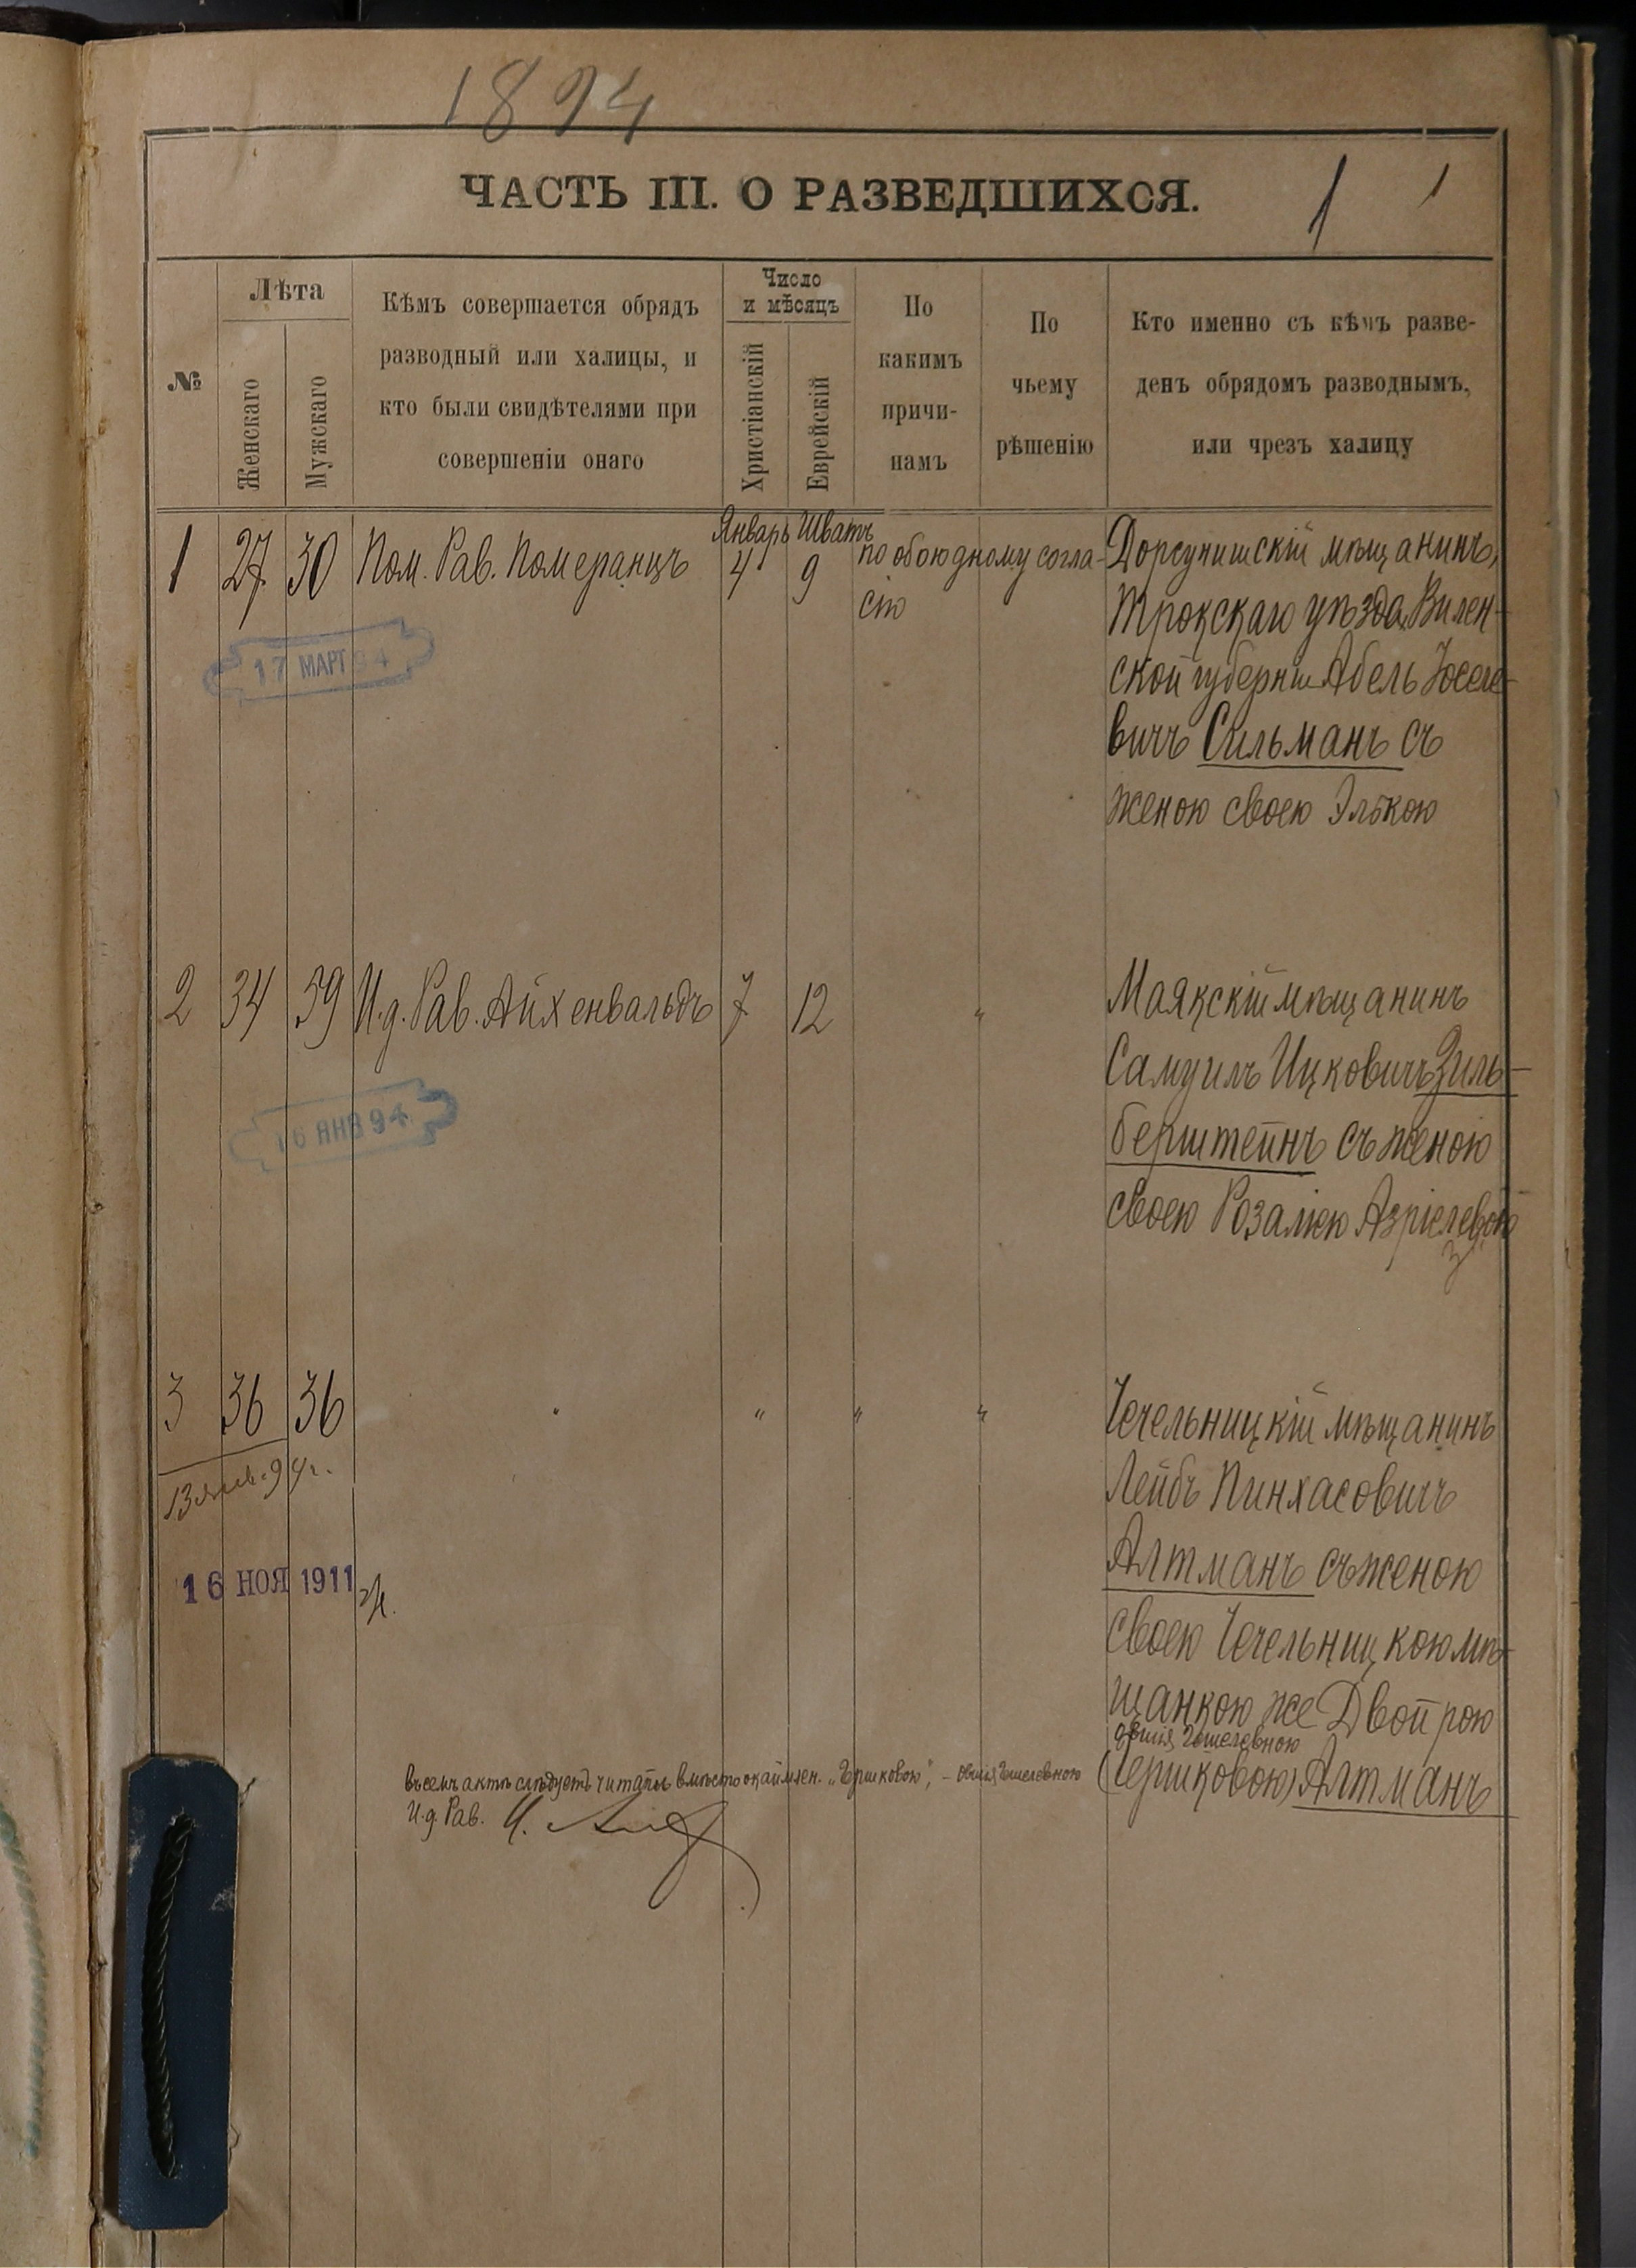 1894
ЧАСТЬ III. О РАЗВЕДШИХСЯ.
1 1
№
Лѣта
Женскаго
Мужскаго
Кѣмъ совершается обрядъ
разводный или халицы, и
кто были свидѣтелями при
совершеніи онаго
Число
и мѣсяцъ
Христіанскій
Еврейскій
По
какимъ
причи-
намъ
По
чьему
рѣшенію
Кто именно съ кѣмъ разве-
денъ обрядомъ разводнымъ,
или чрезъ халицу
1 27 30 Пом. Рав. Померанцъ
Январь Шватъ
4 9
по обоюдному согла-
сію
Дорсунишскій мѣщанинъ,
Трокскаго уѣзда, Вилен-
ской губерніи Абель
вичъ Сильманъ съ
женою своею Элькою
17 МАРТ 94
2 34 59 И.д. Рав. Айхенвальдъ 7 12 "
Маякскій мѣщанинъ
Самуилъ Ицковичъ Зиль-
берштейнъ съ женою
своею Розаліею Азріелевою
16 ЯНВ 94
3 36 36 " " " "
Чечельницкій мѣщанинъ
Лейбъ Пинхасовичъ
Алтманъ съ женою
своею Чечельницкою мѣ-
щанкою же Двойрою
Гершковою) Алтманъ
13 янв. 94 г.
16 НОЯ 1911
въ семъ актѣ слѣдуетъ читать вмѣсто "Гершковою", -
И.д. Рав.